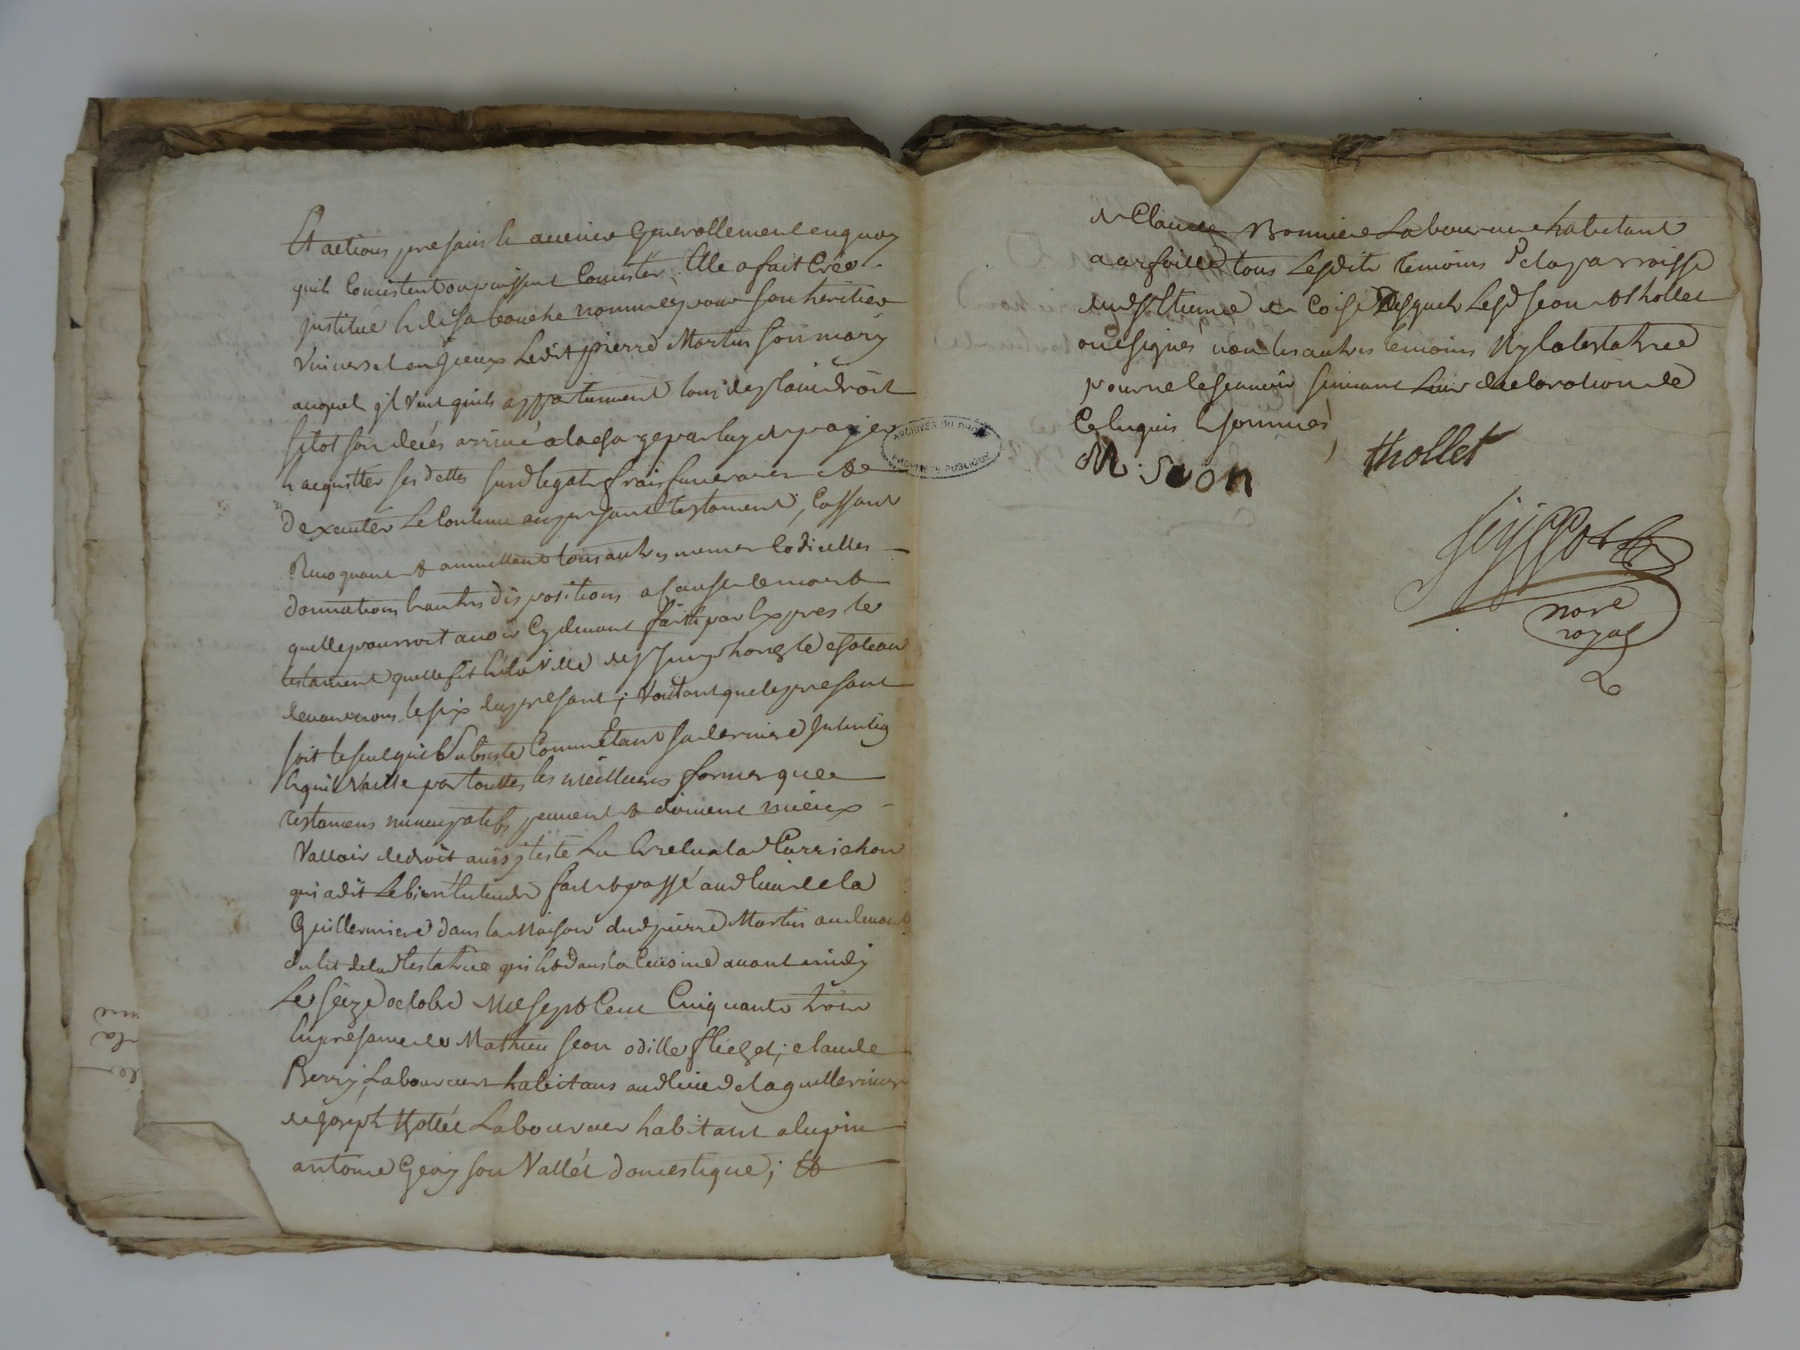 Et actions presants et avenir Generallement en quoy
quils Consistent ou puissent Consister. Elle a fait Créé
institué et de sa bouche nommé pour son heritier
Universel en Yceux Ledit pierre Martin son mary
auquel Yl Veut quils appartiennent tous de plain droit
sitot son decés arrivé a la charge par luy de payer
et acquitter ses dettes susd legats frais funeraires et
d'executer Le Contenu au present testament, Cassant
Revoquant et annullant tous autres memes Codicilles
donnations et autres dispositions a Cause de mort
quelle pourroit avoir Cy devant faits par Expres le
testament quelle fit en la Ville de St Simphorien le chateau
devant nous le six du présant; Voulant que le present
soit le seul qui Subsiste Comme étant sa derniere Intention
et qu'il Vaille par touttes les meilleures formes que
testamens nuncupatifs peuvent et doivent mieux
Valloir de droit ainsy testé La
qui a dit Le bien Entendre fait et passé aud lieu de la
Guillermiere dans la Maison dud pierre Martin au devant
du lit de lad testatrice qui Est dans la Cuisine avant midy
Le seize octobre Mil sept Cent Cinquante trois
En presence de Mathieu Jean odille; claude
Berry, Laboureurs habitans aud lieu de la guillermiere
de Joseph Laboureur habitant
antoine son Vallet domestique; Et
de Claude Bonniere Laboureur habitant
a tous Lesdits temoins de la parroisse
dud St Etienne de Coise Desquels Les Sr Jean et thollet
ont signés non les autres temoins Ny la testatrice
pour ne le scavoir suivant Leur declaration de
Ce Enquis et sommés
M. Jean
thollet
nore
royal
ARCHIVES DU RHONE
PROPRIETE PUBLIQUE